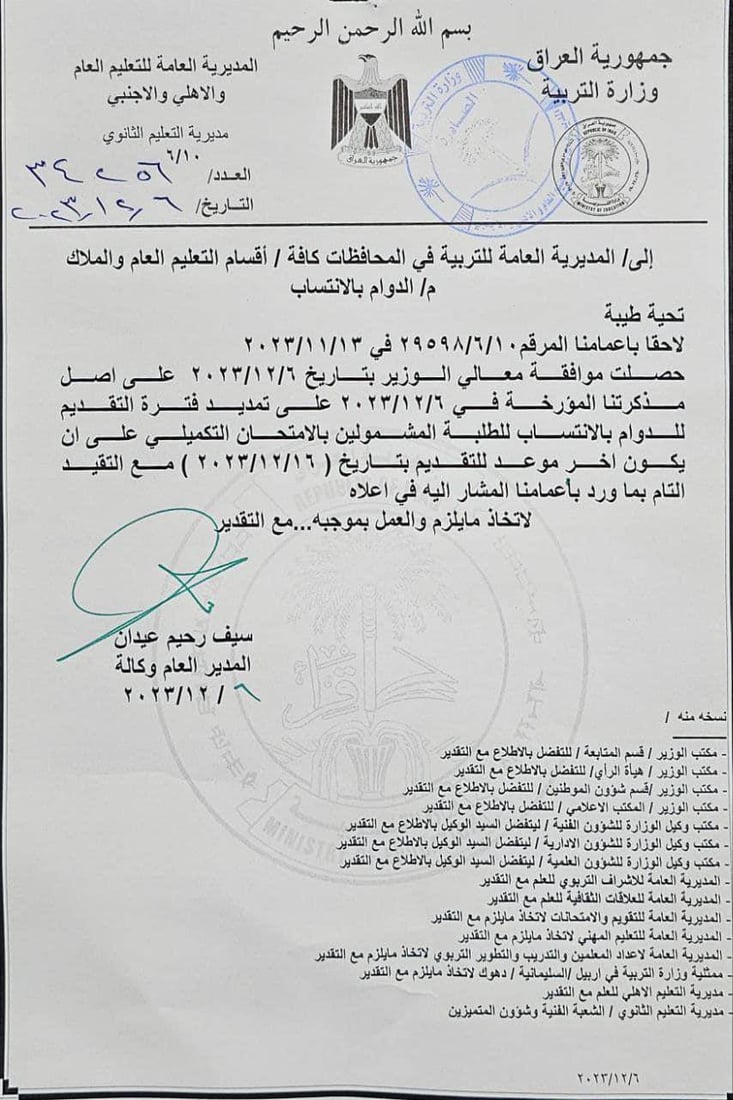 بسم الله الرحمن الرحيم
جمهورية العراق
وزارة التربية
المديرية العامة للتعليم العام
والاهلي والاجنبي
مديرية التعليم الثانوي
٦/١٠
العدد/ ٣٤٢٥٦
التاريخ/ ٢٠٢٣/١٢/٦
جمهورية العراق
وزارة التربية
الصادرة
REPUBLIC OF IRAQ
MINISTRY OF EDUCATION
إلى/ المديرية العامة للتربية في المحافظات كافة / أقسام التعليم العام والملاك
م/ الدوام بالانتساب
تحية طيبة
لاحقا باعمامنا المرقم ٢٩٥٩٨/٦/١٠ في ٢٠٢٣/١١/١٣
حصلت موافقة معالي الوزير بتاريخ ٢٠٢٣/١٢/٦ على اصل
مذكرتنا المؤرخة في ٢٠٢٣/١٢/٦ على تمديد فترة التقديم
للدوام بالانتساب للطلبة المشمولين بالامتحان التكميلي على ان
يكون اخر موعد للتقديم بتاريخ ( ٢٠٢٣/١٢/١٦ ) مع التقيد
التام بما ورد بأعمامنا المشار اليه في اعلاه
لاتخاذ مايلزم والعمل بموجبه...مع التقدير
سيف رحيم عيدان
المدير العام وكالة
٦ / ٢٠٢٣/١٢
نسخه منه /
- مكتب الوزير / قسم المتابعة / للتفضل بالاطلاع مع التقدير
- مكتب الوزير / هيأة الرأي/ للتفضل بالاطلاع مع التقدير
- مكتب الوزير /قسم شؤون الموطنين / للتفضل بالاطلاع مع التقدير
- مكتب الوزير / المكتب الاعلامي / للتفضل بالاطلاع مع التقدير
- مكتب وكيل الوزارة للشؤون الفنية / ليتفضل السيد الوكيل بالاطلاع مع التقدير
- مكتب وكيل الوزارة للشؤون الادارية / ليتفضل السيد الوكيل بالاطلاع مع التقدير
- مكتب وكيل الوزارة للشؤون العلمية / ليتفضل السيد الوكيل بالاطلاع مع التقدير
- المديرية العامة للاشراف التربوي للعلم مع التقدير
- المديرية العامة للعلاقات الثقافية للعلم مع التقدير
- المديرية العامة للتقويم والامتحانات لاتخاذ مايلزم مع التقدير
- المديرية العامة للتعليم المهني لاتخاذ مايلزم مع التقدير
- المديرية العامة لاعداد المعلمين والتدريب والتطوير التربوي لاتخاذ مايلزم مع التقدير
- ممثلية وزارة التربية في اربيل /السليمانية / دهوك لاتخاذ مايلزم مع التقدير
- مديرية التعليم الاهلي للعلم مع التقدير
- مديرية التعليم الثانوي / الشعبة الفنية وشؤون المتميزين
٢٠٢٣/١٢/٦